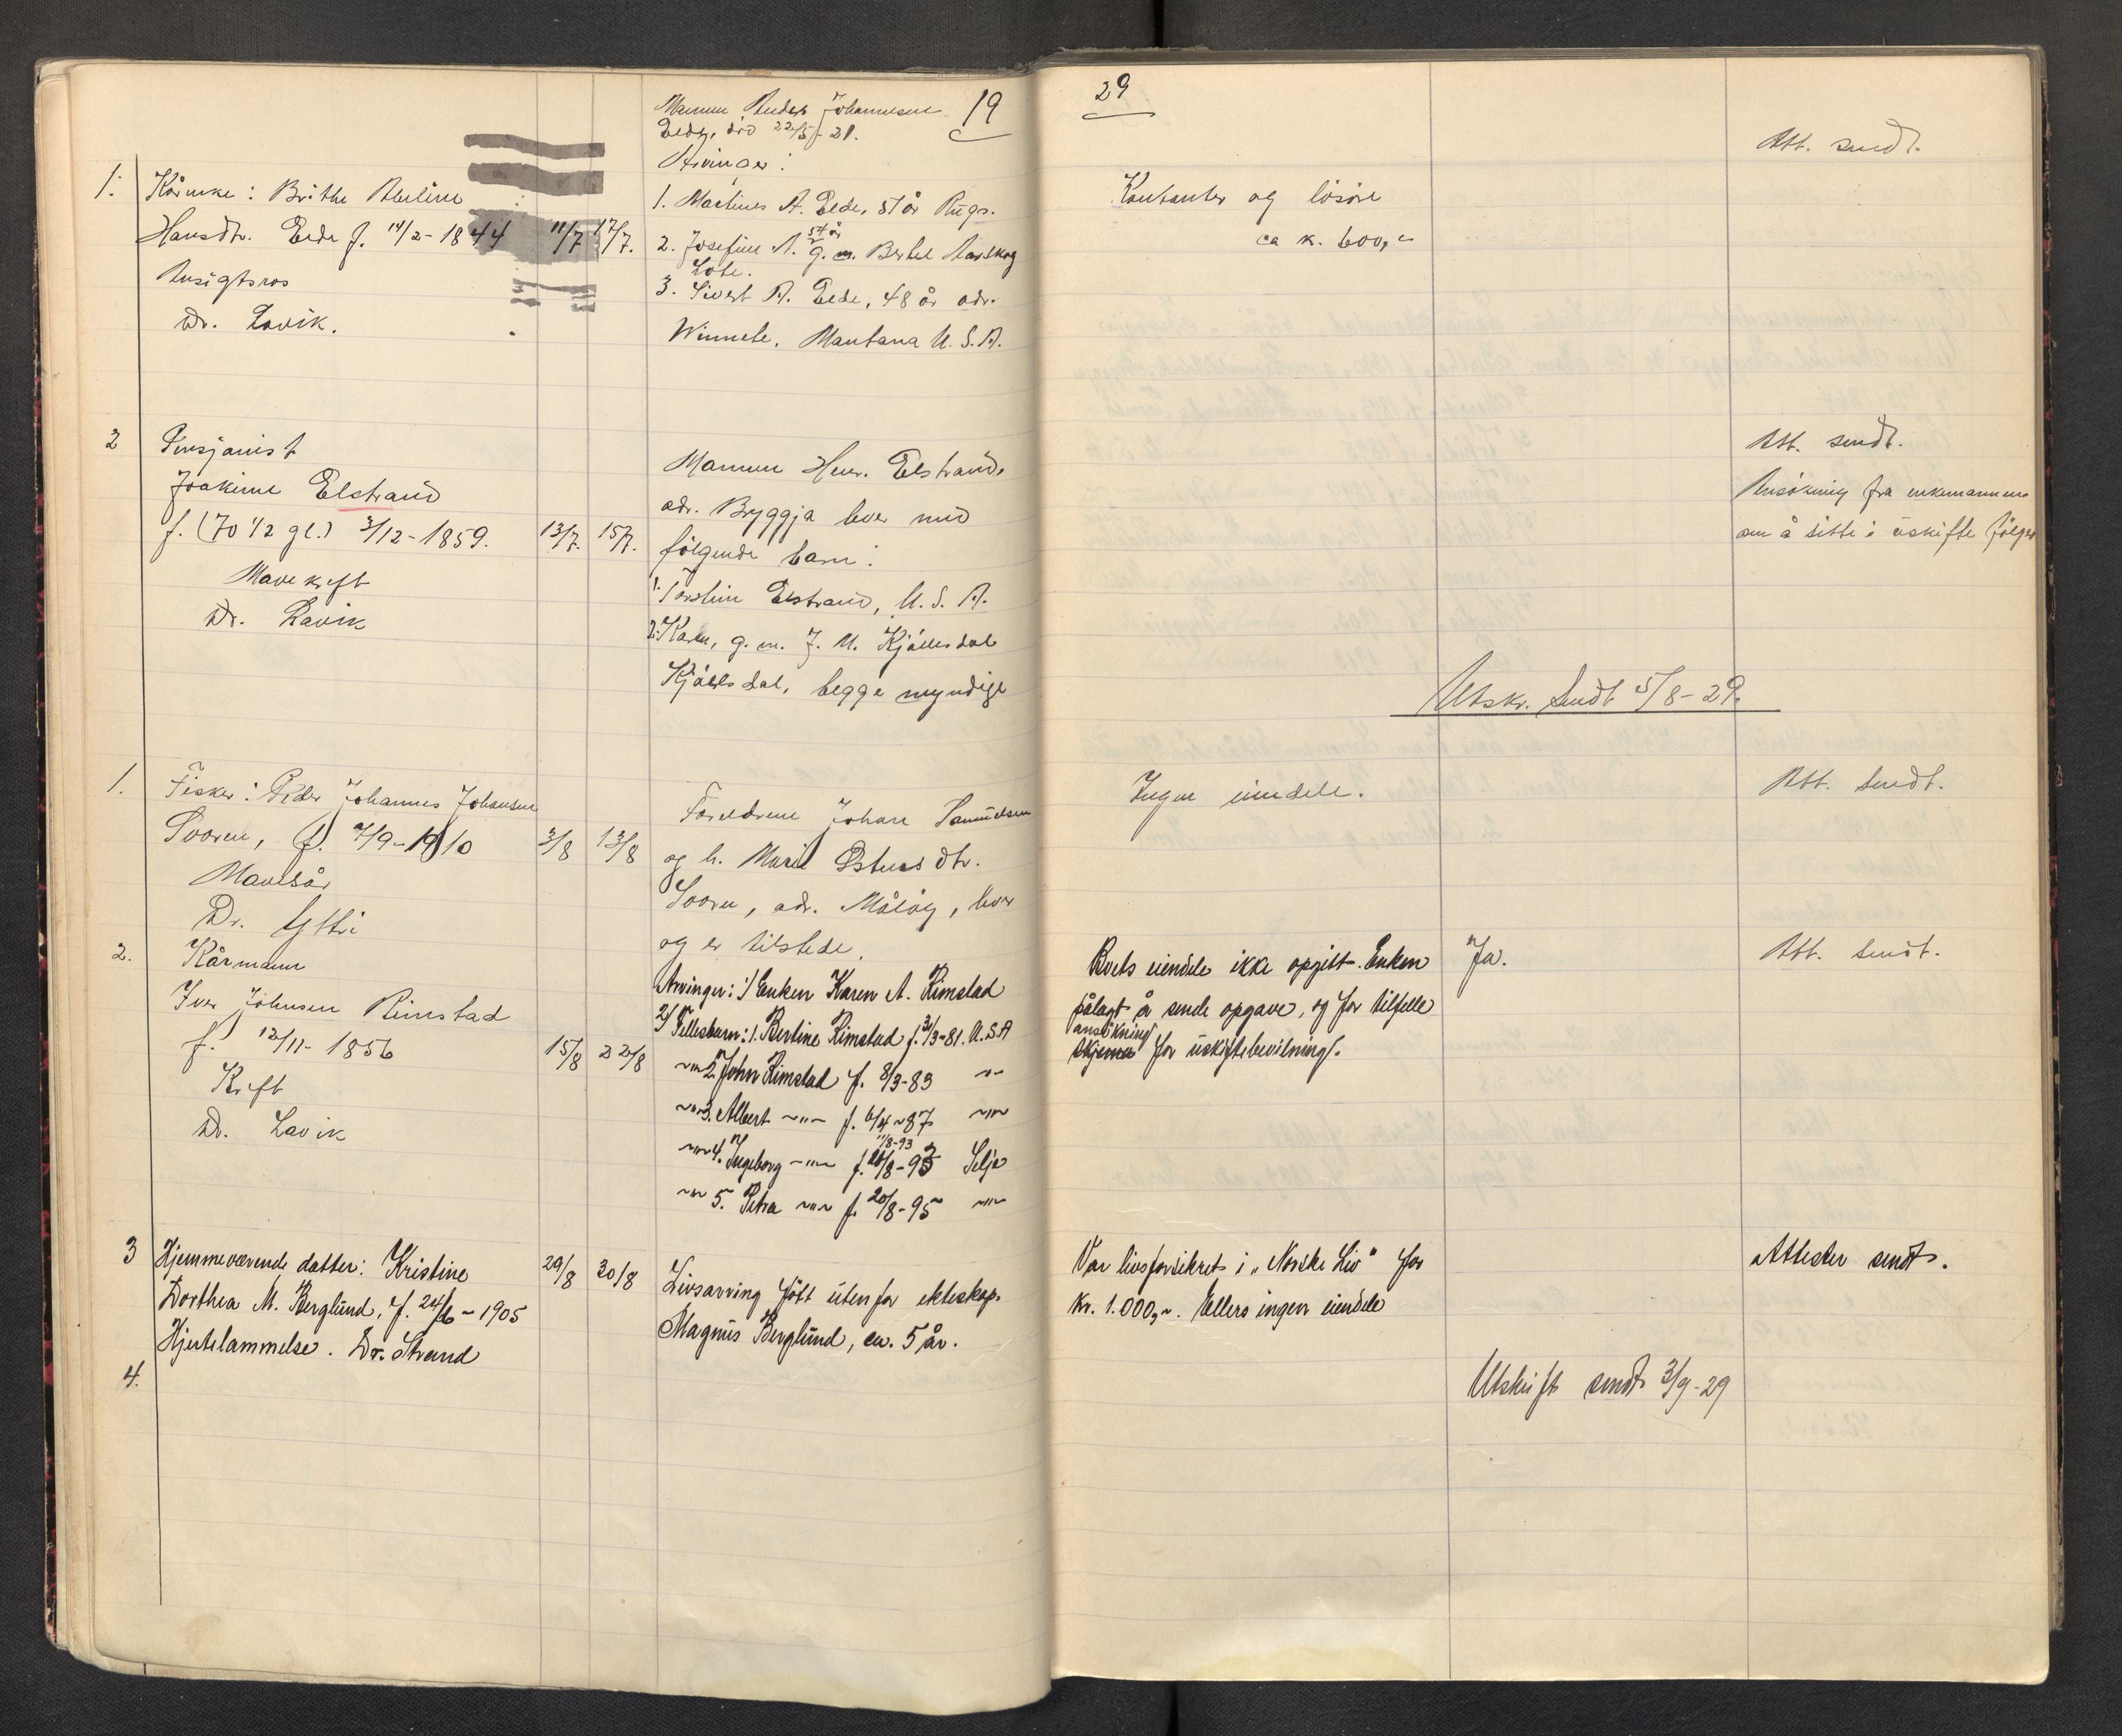 19
Mannen Anders Johannesen
Eede, död 22/5-21.
Arvinger:
1. Kårenke: Brithe Abeline
Hansdtr. Eede f. 14/2-1844
11/7 17/7.
Ansigtsros
Dr. Lavik.
1. Martines A. Eede, 57 år Rugs.
54 år
2. Josefine A. g. m. Bertel Aarskog
Lote.
3. Sivert A. Eede, 48 år adr.
Winnete, Montana U. S. A.
2
Pensjonist
Joakime Elstrand
f. (70 1/2 gl.) 3/12-1859.
13/7. 15/7.
Mavekreft
Dr. Lavik
Mannen Henr. Elstrand,
adr. Bryggja lever med
følgende barn:
1. Torstein Elstrand, U. S. A.
2. Karen, g. m. J. M. Kjöllsdal
Kjöllsdal, begge myndige
1. Fisker: Peder Johannes Johansen
Sooren, f. 7/9-1910
3/8 13/8
Mavesår
Dr. Yttri
Foreldrene Johan Samuelsen
og h. Marie Östensdtr.
Sooren, adr. Måløy, lever
og er tilstede.
2. Kårmann
Iver Johnsen Rimstad
f. 12/11-1856
15/8 22/8
Kreft
Dr. Lavik
Arvinger: 1/ Enken Karen A. Rimstad
2/ Fellesbarn: 1. Bertine Rimstad f. 31/3-81. U.S.A
-"- 2. John Rimstad f. 8/3-83 -"-
-"- 3. Albert -"- f. 6/4-87 -"-
11/8-93
-"- 4. Ingeborg -"- f. /8-93 Selje
-"- 5. Petra -"- f. 20/8-95 -"-
3 Hjemmeværende datter: Kristine
Dorthea M. Berglund, f. 24/6-1905
Hjertelammelse. Dr. Strand
29/8 30/8
Livsarving født utenfor ekteskap.
Magnus Berglund, ca. 5 år.
4.
29
Kontanter og lösöre
ca k. 600,-
Att. sendt.
Att. sendt.
Ansökning fra enkemannen
om å sitte i uskifte følger
Utskr. sendt 5/8-29.
Ingen eiendele.
Att. sendt.
Boets eiendele ikke opgitt. Enken
pålagt å sende opgave, og for tilfelle
ansökning
skjema for uskiftebevilning.
Ja.
Att. sendt.
Var livsforsikret i „Norske Liv" for
Kr. 1.000,-. Ellers ingen eiendele
Attester sendt.
Utskrift sendt 3/9-29